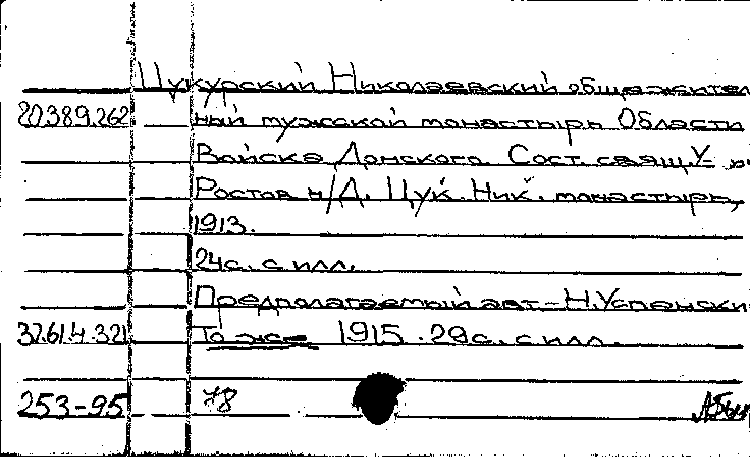 Цукурский Николаевский общежител
20389.262 ный мужской монастырь Области
Войска Донского. Сост. свящ. У-
Ростов н/Д, Цук. Ник. монастырь,
1913.
24с. с илл.
Предполагаемый авт.-Н.Успенски
37.61.4.321 То же 1915. 29с. с илл.
253-95 78